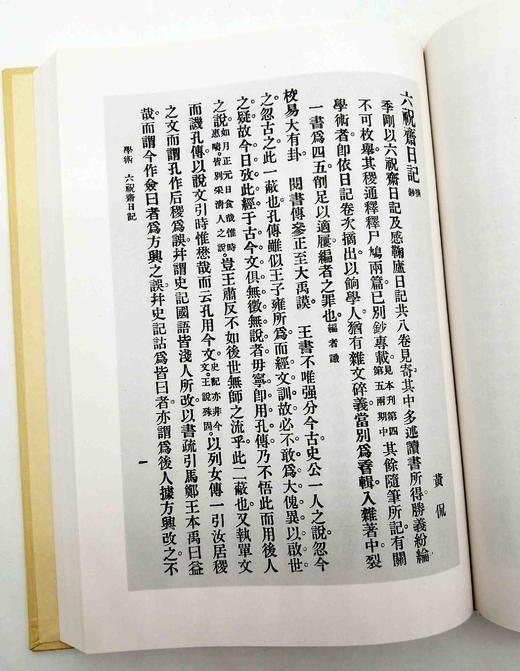 六祝齋日記
黃侃
季剛以六祝齋日記及感鞠廬日記共八卷見寄其中多述讀書所得勝義紛綸
不可枚舉其稷通釋釋尸鳩兩篇已別鈔專載見本刊第四第五兩期中其餘隨筆所記有關
學術者卽依日記卷次摘出以餉學人猶有雜文碎義當別爲纂輯入雜著中裂
一書爲四五削足以適屨編者之罪也編者識
校易大有卦。閱書傳參正至大禹謨。王書不唯强分今古史公一人之說忽今
之忽古之此一蔽也孔傳雖似王子雍所爲而經文訓故必不敢爲大傀異以啟世
之疑故今日攷此經于古今文俱無徵無說者毋寧卽用孔傳乃不悟此而用後人
之說如月正元日食哉惟時惠疇皆別采清人之說豈王肅反不如後世無師之流乎此二蔽也又執單文
而譏孔傳以說文引時惟懋哉而云孔用今文史記亦非今文王說殊固以列女傳一引汝居稷
之文而謂孔作后稷爲誤幷謂史記國語皆淺人所改以書疏引馬鄭王本禹曰益
哉而謂今作僉曰者爲方興之誤幷史記詁爲皆曰者亦謂爲後人據方興改之不
學術 六祝齋日記
一